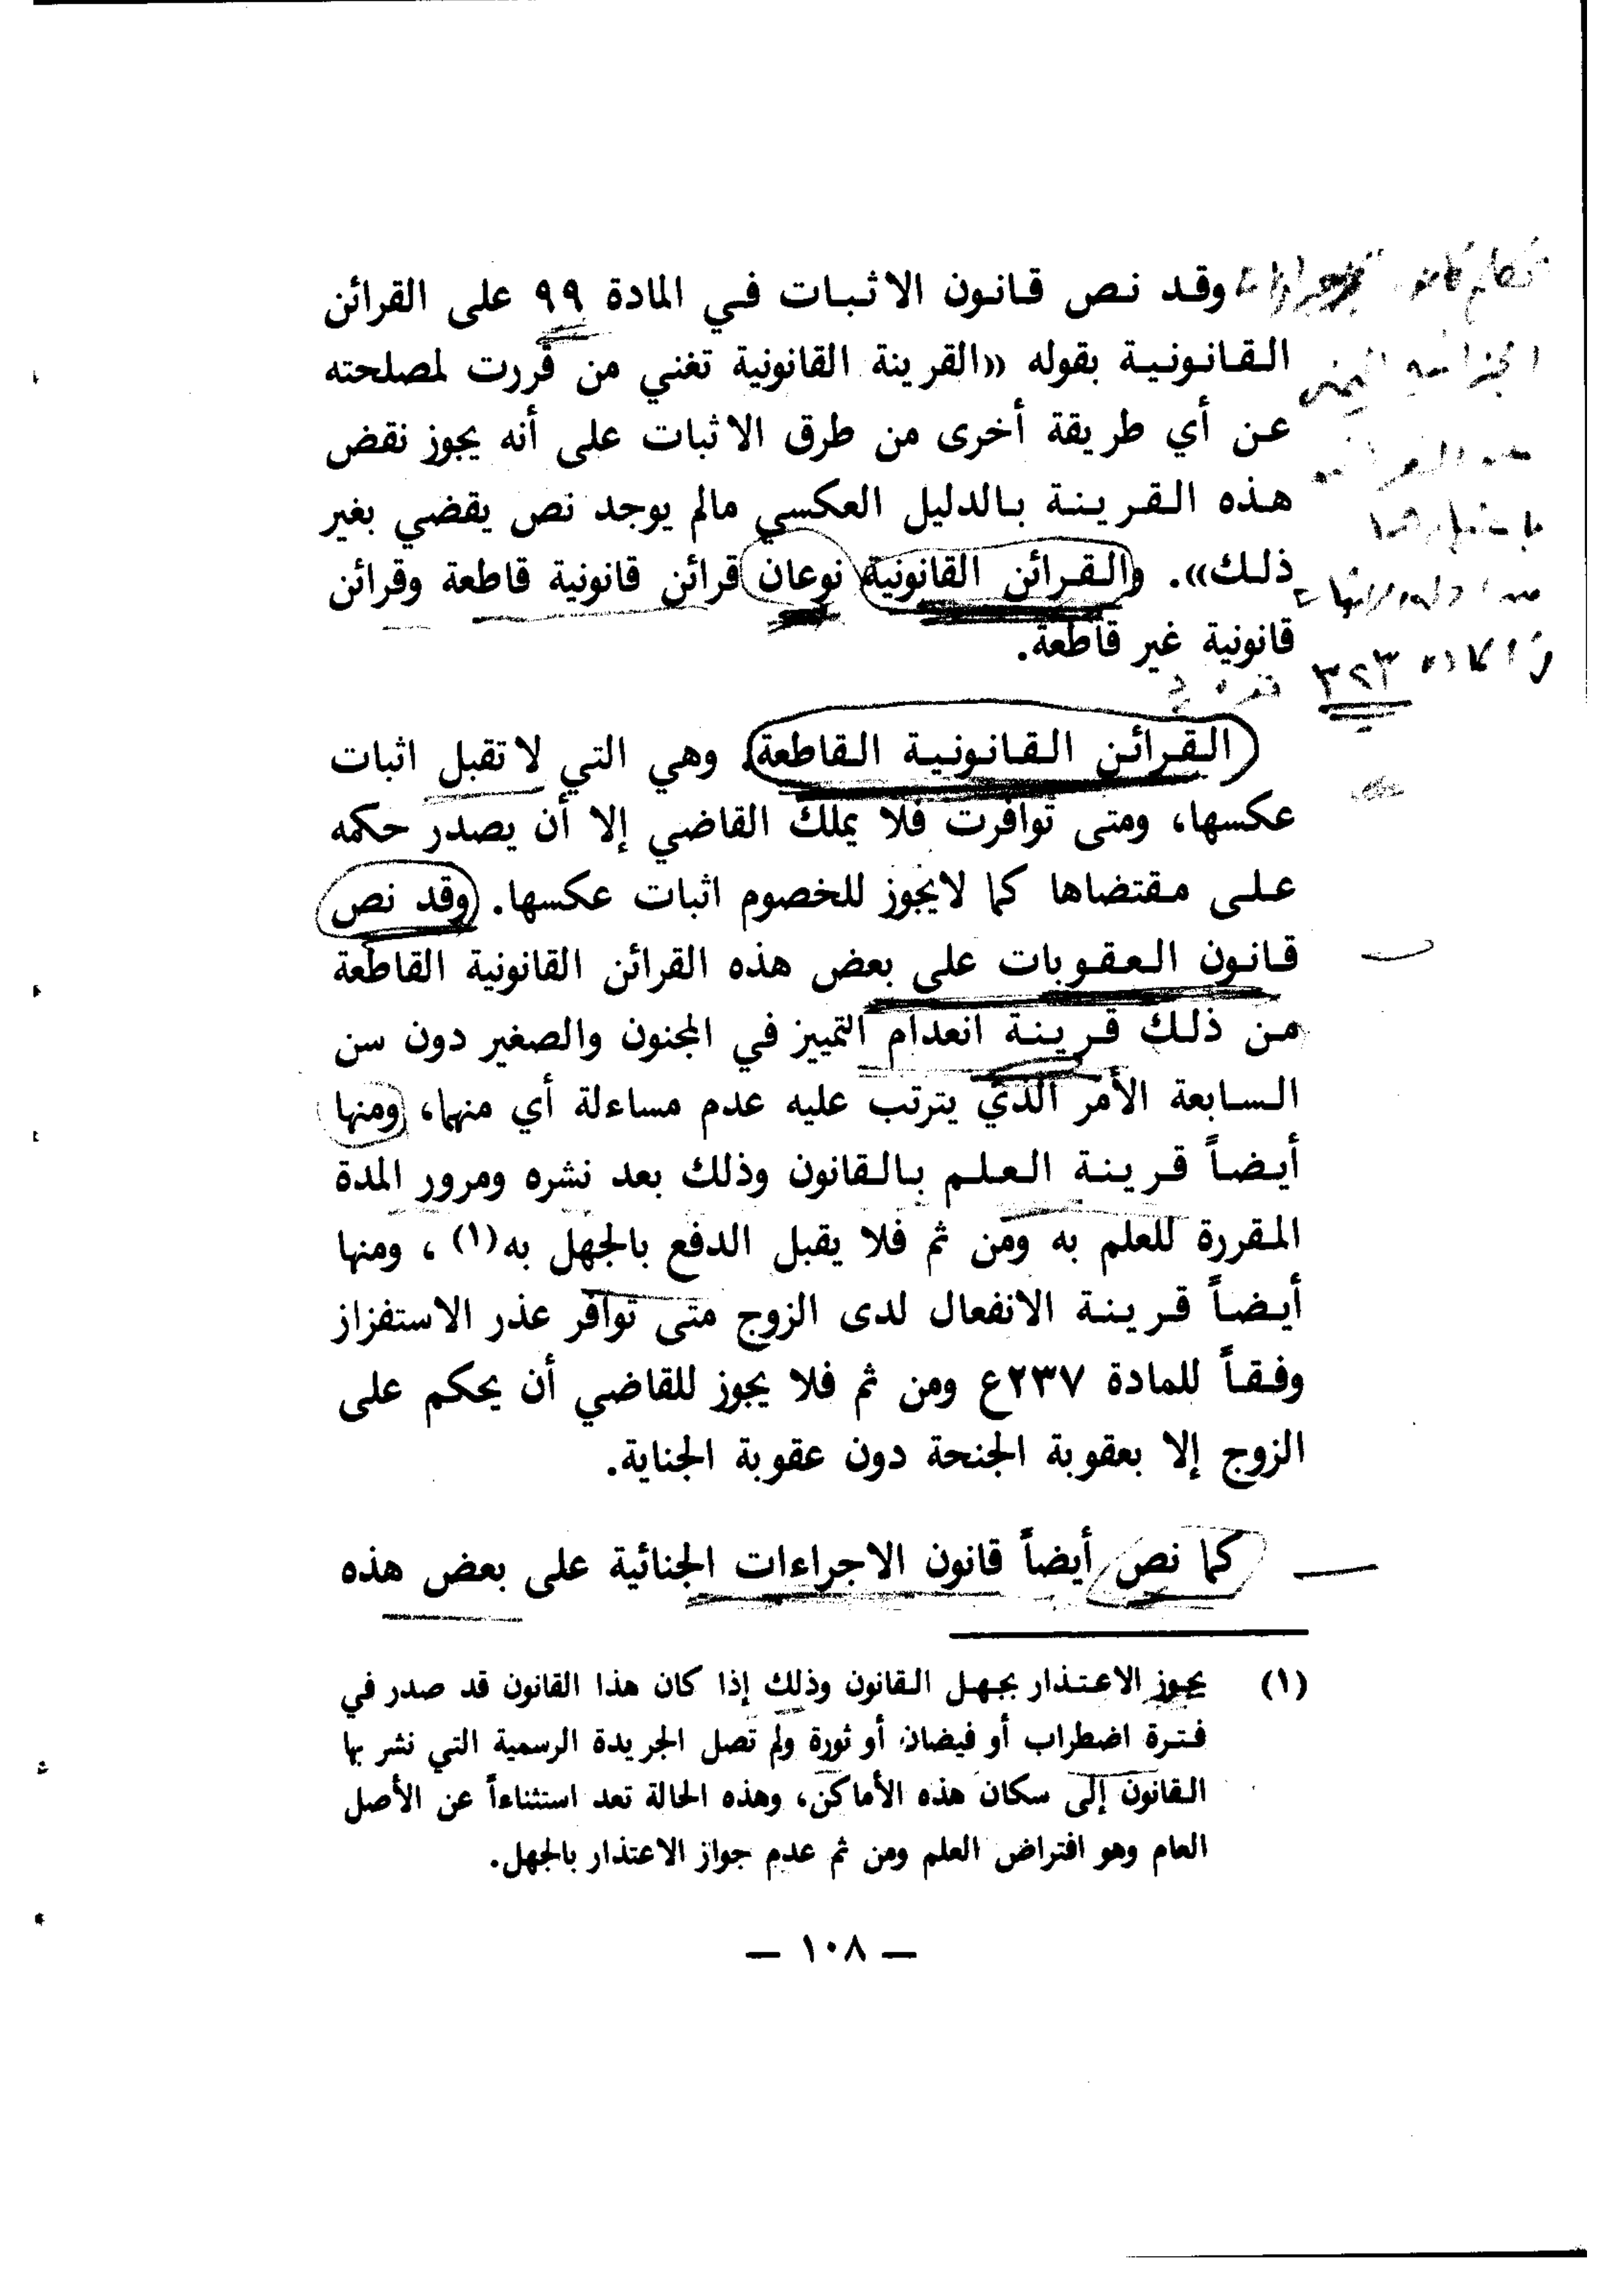 وقد نص قانون الاثبات في المادة ٩٩ على القرائن
القانونية بقوله «القرينة القانونية تغني من قررت لمصلحته
عن أي طريقة أخرى من طرق الاثبات على أنه يجوز نقض
هذه القرينة بالدليل العكسي مالم يوجد نص يقضي بغير
ذلك». والقرائن القانونية نوعان قرائن قانونية قاطعة وقرائن
قانونية غير قاطعة.
٣٢٣
القرائن القانونية القاطعة. وهي التي لا تقبل اثبات
عكسها، ومتى توافرت فلا يملك القاضي إلا أن يصدر حكمه
على مقتضاها كما لايجوز للخصوم اثبات عكسها. وقد نص
قانون العقوبات على بعض هذه القرائن القانونية القاطعة
من ذلك قرينة انعدام التمييز في المجنون والصغير دون سن
السابعة الأمر الذي يترتب عليه عدم مساءلة أي منهما، ومنها
أيضاً قرينة العلم بالقانون وذلك بعد نشره ومرور المدة
المقررة للعلم به ومن ثم فلا يقبل الدفع بالجهل به(١) ، ومنها
أيضاً قرينة الانفعال لدى الزوج متى توافر عذر الاستفزاز
وفقاً للمادة ٢٣٧ع ومن ثم فلا يجوز للقاضي أن يحكم على
الزوج إلا بعقوبة الجنحة دون عقوبة الجناية.
كما نص أيضاً قانون الاجراءات الجنائية على بعض هذه
(١) يجوز الاعتذار بجهل القانون وذلك إذا كان هذا القانون قد صدر في
فترة اضطراب أو فيضان أو ثورة ولم تصل الجريدة الرسمية التي نشر بها
القانون إلى سكان هذه الأماكن، وهذه الحالة تعد استثناءاً عن الأصل
العام وهو افتراض العلم ومن ثم عدم جواز الاعتذار بالجهل.
— ١٠٨ —